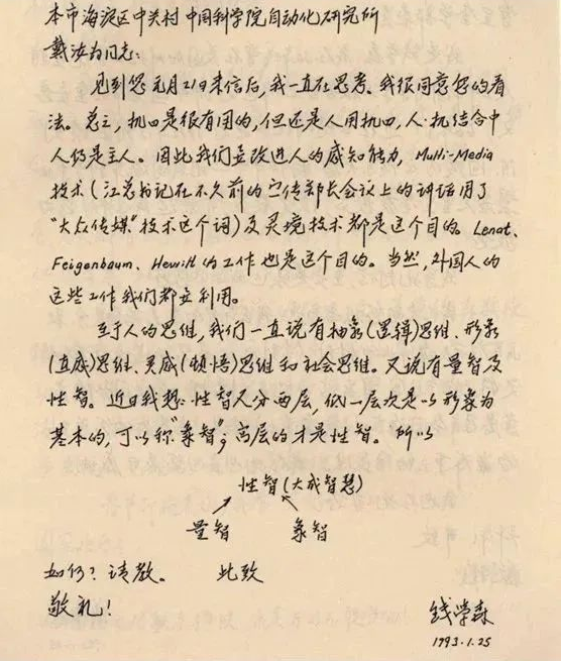 本市海淀区中关村 中国科学院自动化研究所
戴汝为同志:
见到您元月21日来信后,我一直在思考、我很同意您的看
法。总之,机口是很有用的,但还是人用机口,人·机结合中
人仍是主人。因此我们应改进人的感知能力, Multi-Media
技术(江总书记在不久前的宣传部长会议上的讲话用了
“大众传媒”技术这个词)及灵境技术都是这个目的。Lenat、
Feigenbaum、Hewitt 的工作也是这个目的。当然,外国人的
这些工作我们都应利用。
至于人的思维,我们一直说有抽象(逻辑)思维、形象
(直感)思维、灵感(顿悟)思维和社会思维。又说有量智及
性智。近日我想:性智又分两层,低一层次是以形象为
基本的,可以称“象智”;高层的才是性智。所以
性智(大成智慧)
量智 象智
如何?请教。 此致
敬礼!
钱学森
1993.1.25